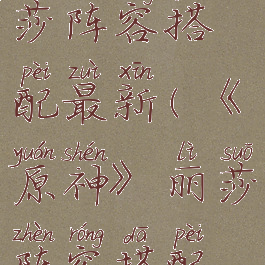 莎阵容搭
pèi zuì xīn
配最新(《
yuán shén lì suō
原神》丽莎
zhèn róng dā pèi
阵容搭配